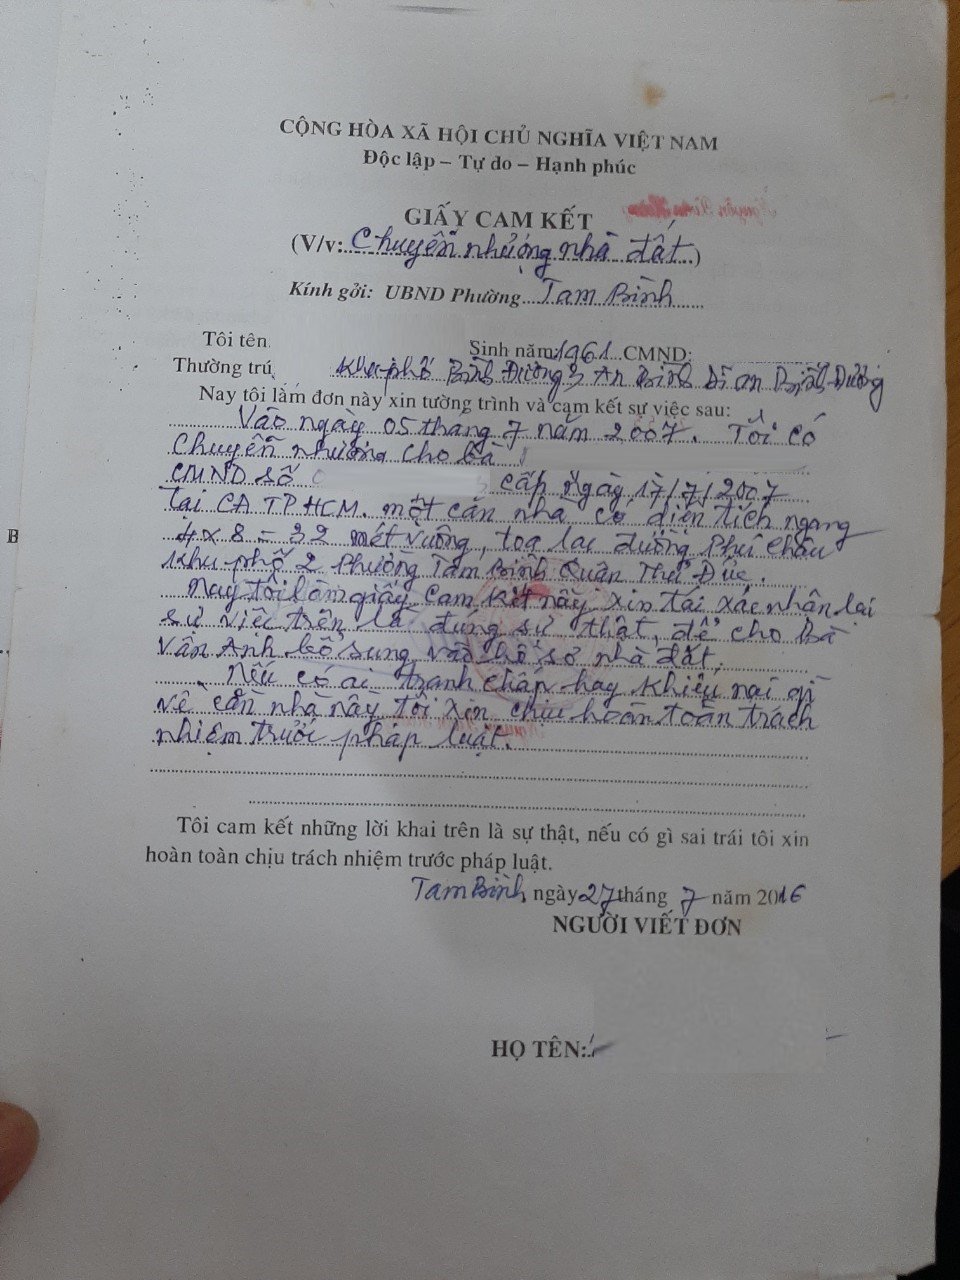 CỘNG HÒA XÃ HỘI CHỦ NGHĨA VIỆT NAM
Độc lập – Tự do – Hạnh phúc
GIẤY CAM KẾT
(V/v: Chuyển nhượng nhà đất)
Kính gởi: UBND Phường Tam Bình
Tôi tên Sinh năm: 1961 CMND:
Thường trú Khu phố Bình Đường 3 An Bình Dĩ an Bình Dương
Nay tôi làm đơn này xin tường trình và cam kết sự việc sau:
Vào ngày 05 tháng 7 năm 2007. Tôi có
Chuyển nhượng cho bà
CMND số cấp ngày 17/7/2007
tại CA TP HCM. một căn nhà có diện tích ngang
4 x 8 = 32 mét vuông, tọa lạc đường Phú Châu
khu phố 2 Phường Tam Bình Quận Thủ Đức.
Nay tôi làm giấy cam kết này xin tái xác nhận lại
sự việc trên là đúng sự thật, để cho Bà
Vân Anh bổ sung vào hồ sơ nhà đất.
Nếu có ai tranh chấp hay khiếu nại gì
về căn nhà này tôi xin chịu hoàn toàn trách
nhiệm trước pháp luật.
Tôi cam kết những lời khai trên là sự thật, nếu có gì sai trái tôi xin
hoàn toàn chịu trách nhiệm trước pháp luật.
Tam Bình, ngày 27 tháng 7 năm 2016
NGƯỜI VIẾT ĐƠN
HỌ TÊN:
B